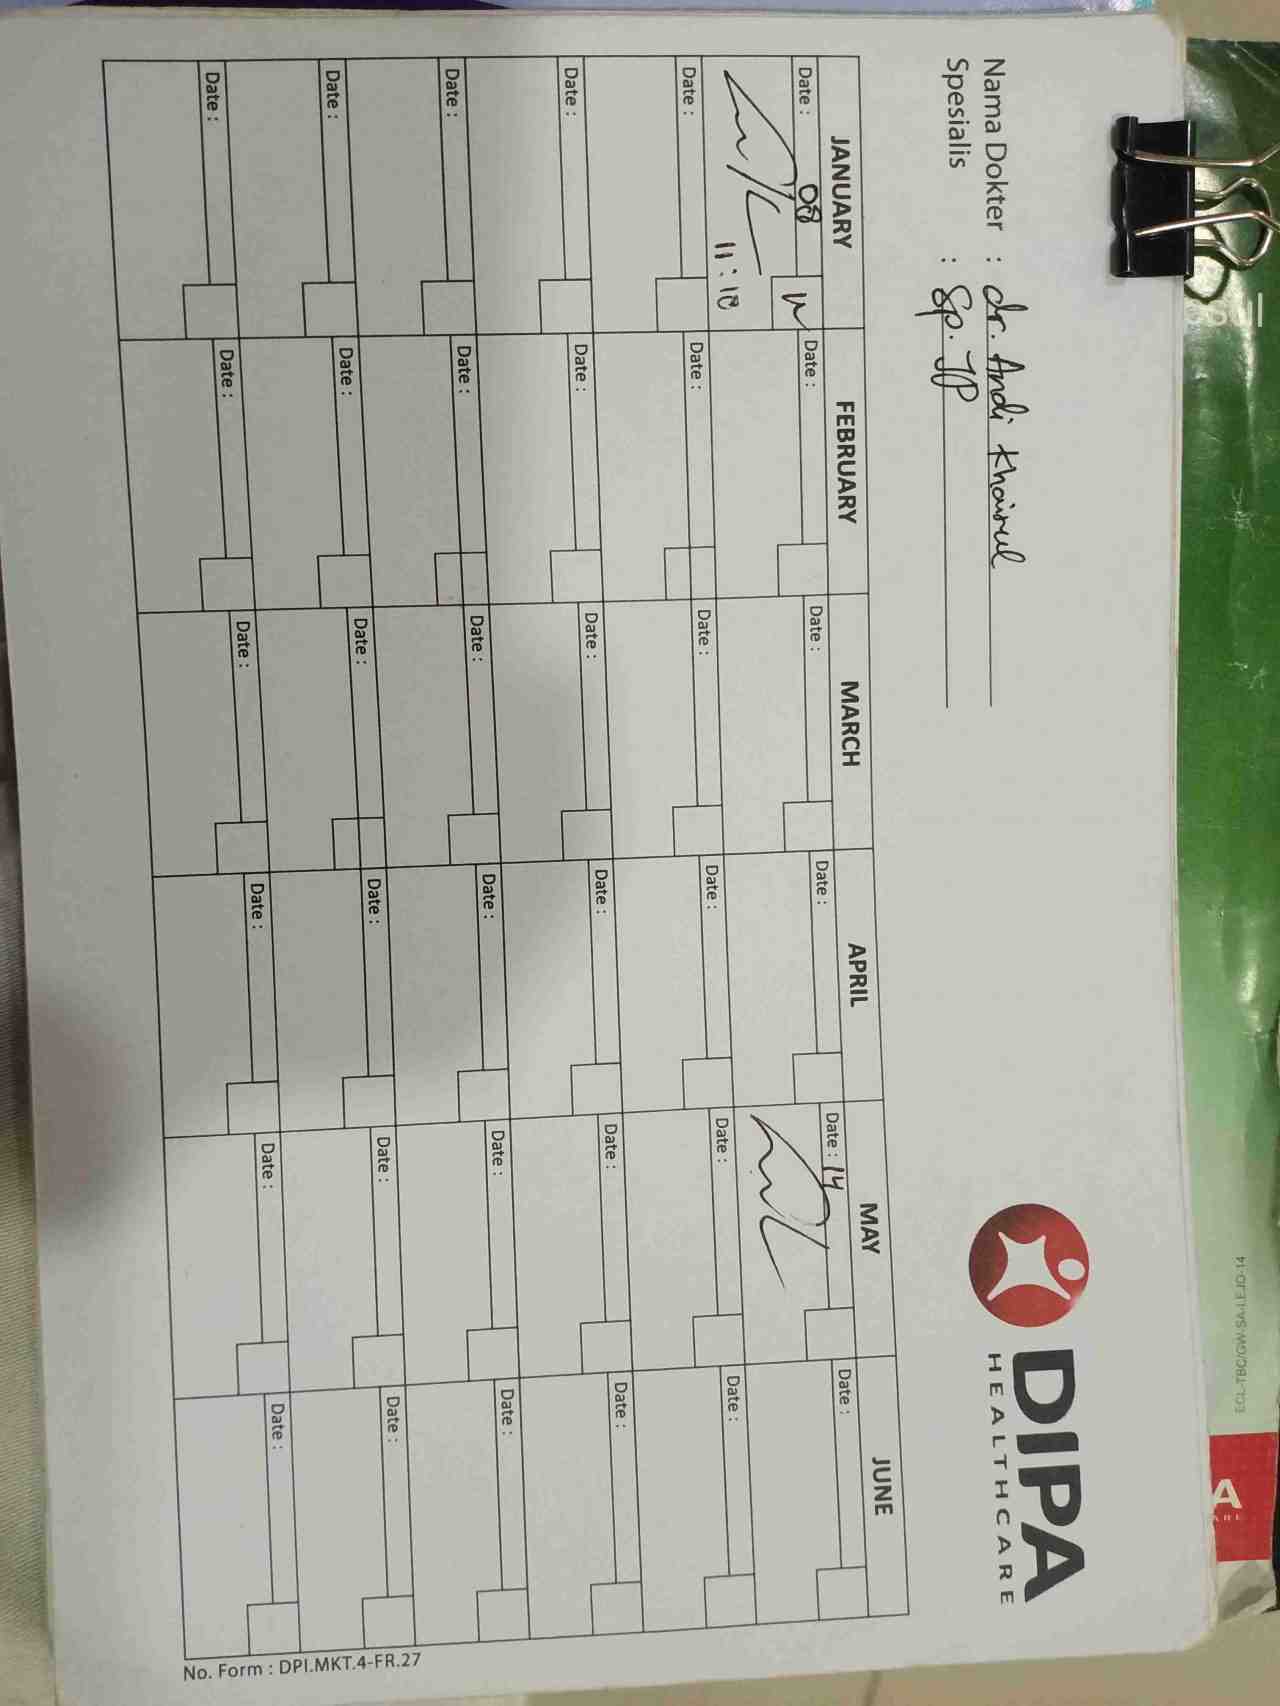 Nama Dokter : dr. Andi Khairul
Spesialis : Sp. JP
DIPA
HEALTHCARE
JANUARY FEBRUARY MARCH APRIL MAY JUNE
Date : 08 Date : Date : Date : Date : 14 Date :
11:10
Date : Date : Date : Date : Date : Date :
Date : Date : Date : Date : Date : Date :
Date : Date : Date : Date : Date : Date :
Date : Date : Date : Date : Date : Date :
Date : Date : Date : Date : Date : Date :
No. Form : DPI.MKT.4-FR.27
A
ARE